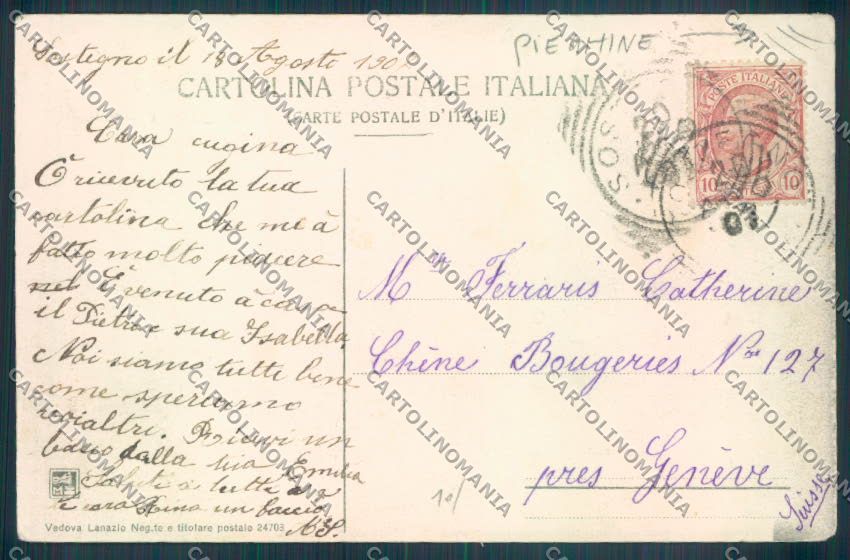 Sostegno il 18 Agosto 190
PIEMHINE
CARTOLINA POSTALE ITALIANA
(CARTE POSTALE D'ITALIE)
POSTE ITALIANE
10 10
SOS
Cara cugina
È ricevuto la tua
cartolina che me à
fatto molto piacere
È venuto à casa
il Pietro e sua Isabella
Noi siamo tutti bene
come speriamo
voialtri. Ricevi un
bacio dalla tua Emilia
Saluti a tutti e a
la cara Nina un baccio
Mlle Ferraris Catherine
Chêne Bougeries No 127
pres Genève
Suisse
10/
Vedova Lanazio Neg.te e titolare postale 24703
CARTOLINOMANIA